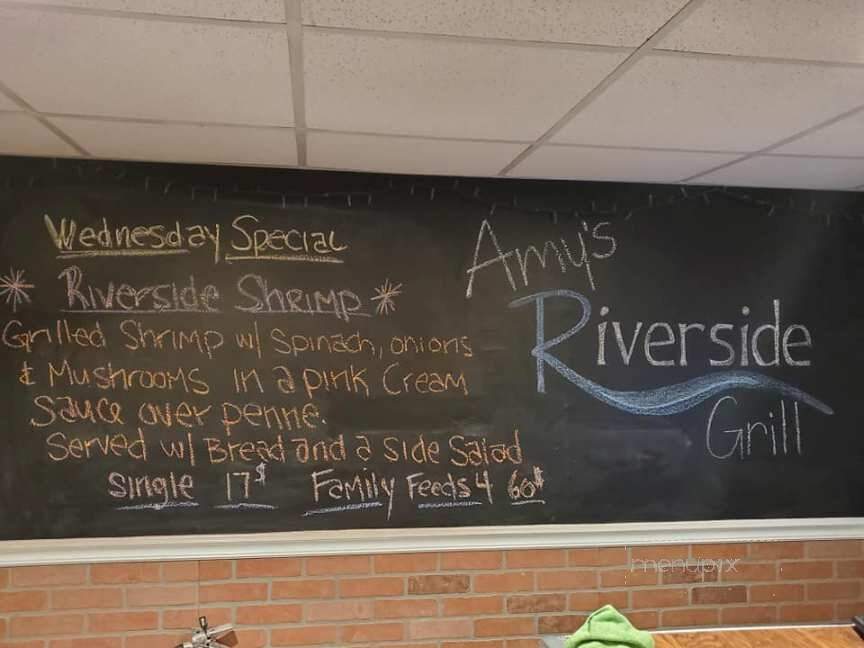 Wednesday Special
* Riverside Shrimp *
Grilled Shrimp w/ Spinach, onions
& Mushrooms in a pink Cream
Sauce over penne.
Served w/ Bread and a side Salad
Single 17$ Family Feeds 4 60$
Amy's
Riverside
Grill
menupix